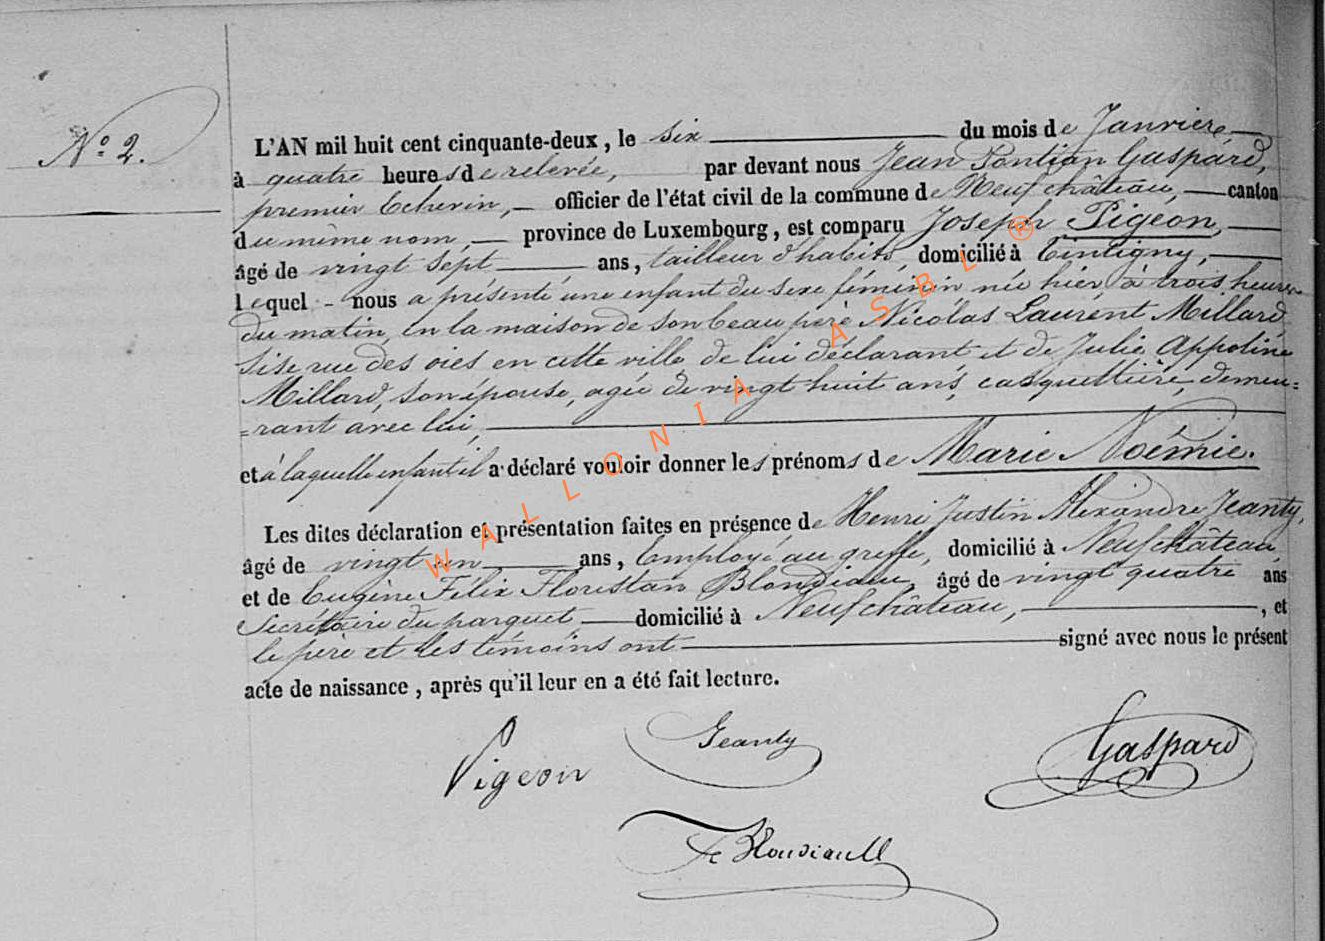 N.o 2.
L'AN mil huit cent cinquante-deux, le six du mois de Janvier
à quatre heures de relevée, par devant nous Jean Pontian Gaspard,
premier Echevin, officier de l'état civil de la commune de Neufchâteau, canton
du même nom, province de Luxembourg, est comparu Joseph Pigeon,
âgé de vingt sept ans, tailleur d'habits, domicilié à Tintigny,
lequel - nous a présenté une enfant du sexe féminin née hier, à trois heures
du matin, en la maison de son beau père Nicolas Laurent Millard
sise rue des oies en cette ville de lui déclarant et de Julie Appoline
Millard, son épouse, agée de vingt huit ans, casquettière, demeu=
=rant avec lui,
et à laquelle enfant il a déclaré vouloir donner les prénoms de Marie Noémie.
Les dites déclaration et présentation faites en présence de Henri Justin Alexandre Jeanty,
âgé de vingt un ans, Employé au greffe, domicilié à Neufchâteau,
et de Eugène Félix Floristan Blondiau, âgé de vingt quatre ans
Secrétaire du parquet domicilié à Neufchâteau, , et
le père et les témoins ont signé avec nous le présent
acte de naissance, après qu'il leur en a été fait lecture.
Pigeon Jeanty Gaspard
WALLONIA ASBL ®